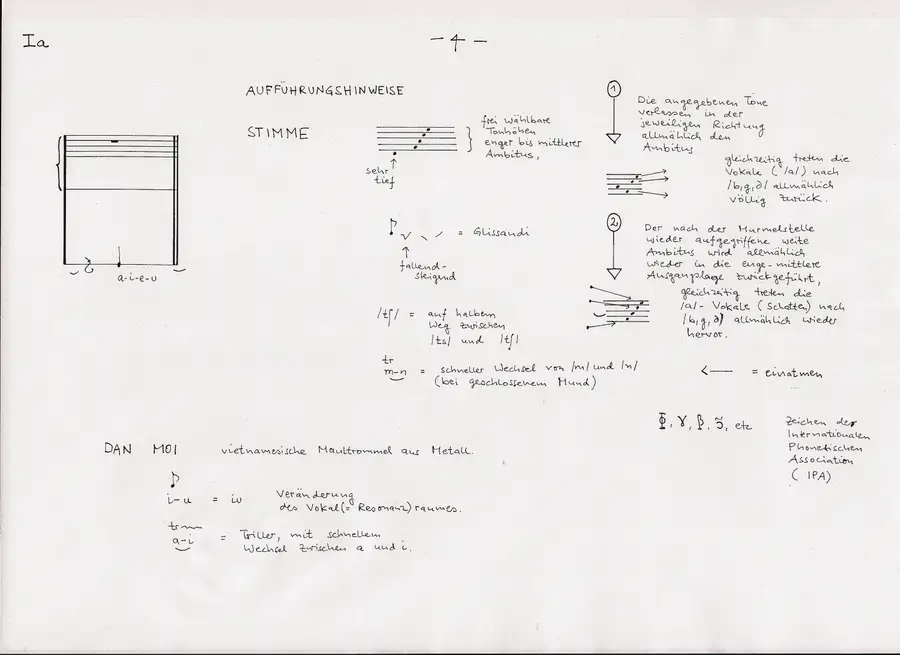 Ia
- 4 -
AUFFÜHRUNGSHINWEISE
STIMME
frei wählbare
Tonhöhen
enger bis mittlerer
Ambitus,
sehr
tief
= Glissandi
fallend-
steigend
/tʃ/ = auf halbem
Weg zwischen
/ts/ und /tʃ/
tr
m-n = schneller Wechsel von /m/ und /n/
(bei geschlossenem Mund)
1
Die angegebenen Töne
verlassen in der
jeweiligen Richtung
allmählich den
Ambitus
gleichzeitig treten die
Vokale ( /a/ ) nach
/b, g, ∂/ allmählich
völlig zurück.
2
Der nach der Murmelstelle
wieder aufgegriffene weite
Ambitus wird allmählich
wieder in die enge-mittlere
Ausganglage zurückgeführt,
gleichzeitig treten die
/a/- Vokale ( Schatten) nach
/b, g, ∂/ allmählich wieder
hervor.
<— = einatmen
Φ, γ, β, ʒ, etc
Zeichen der
Internationalen
Phonetischen
Association
( IPA)
a-i-e-u
DAN MOI
vietnamesische Maultrommel aus Metall.
i-u = iu Veränderung
des Vokal(= Resonanz)raumes.
tr
a-i = Triller, mit schnellem
Wechsel zwischen a und i.